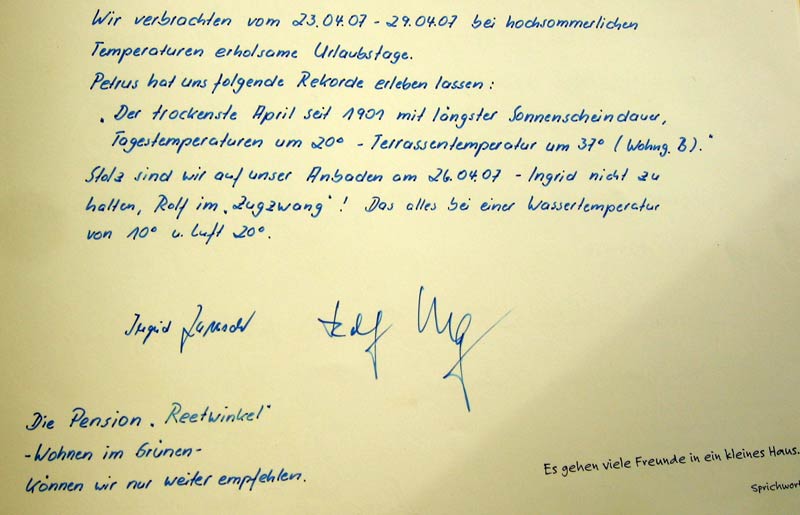 Wir verbrachten vom 23.04.07 - 29.04.07 bei hochsommerlichen
Temperaturen erholsame Urlaubstage.
Petrus hat uns folgende Rekorde erleben lassen:
„Der trockenste April seit 1901 mit längster Sonnenscheindauer,
Tagestemperaturen um 20° - Terrassentemperatur um 37° (Wohng. B)."
Stolz sind wir auf unser Anbaden am 26.04.07 - Ingrid nicht zu
halten, Rolf im „Zugzwang"! Das alles bei einer Wassertemperatur
von 10° u. Luft 20°.
Ingrid
Rolf
Die Pension „Reetwinkel"
-Wohnen im Grünen-
können wir nur weiter empfehlen.
Es gehen viele Freunde in ein kleines Haus.
Sprichwort